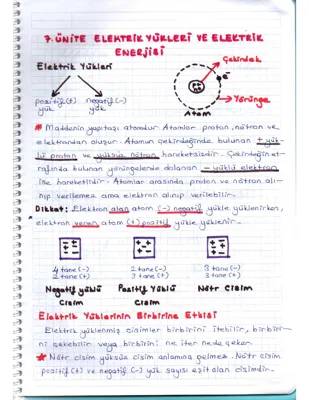 7. ÜNİTE ELEKTRİK YÜKLERİ VE ELEKTRİK
ENERJİSİ
Elektrik Yükleri
Çekirdek
e⁻
pozitif (+) negatif (-)
yük yük
Yörünge
Atom
* Maddenin yapıtaşı atomdur. Atomlar proton, nötron ve
elektrondan oluşur. Atomun çekirdeğinde bulunan + yük-
lü proton ve yüksüz nötron hareketsizdir. Çekirdeğin et-
rafında bulunan yörüngelerde dolanan - yüklü elektron
ise hareketlidir. Atomlar arasında proton ve nötron alı-
nıp verilemez ama elektron alınıp verilebilir.
Dikkat: Elektron alan atom (-) negatif yükle yüklenirken,
elektron veren atom (+) pozitif yükle yüklenir.
4 tane (-) 2 tane (-) 3 tane (-)
2 tane (+) 3 tane (+) 3 tane (+)
Negatif yüklü Pozitif Yüklü Nötr Cisim
Cisim Cisim
Elektrik Yüklerinin Birbirine Etkisi
Elektrik yüklenmiş cisimler birbirini itebilir, birbiri-
ni çekebilir veya birbirini ne iter ne de çeker.
* Nötr cisim yüksüz cisim anlamına gelmez. Nötr cisim
pozitif (+) ve negatif (-) yük sayısı eşit olan cisimdir.